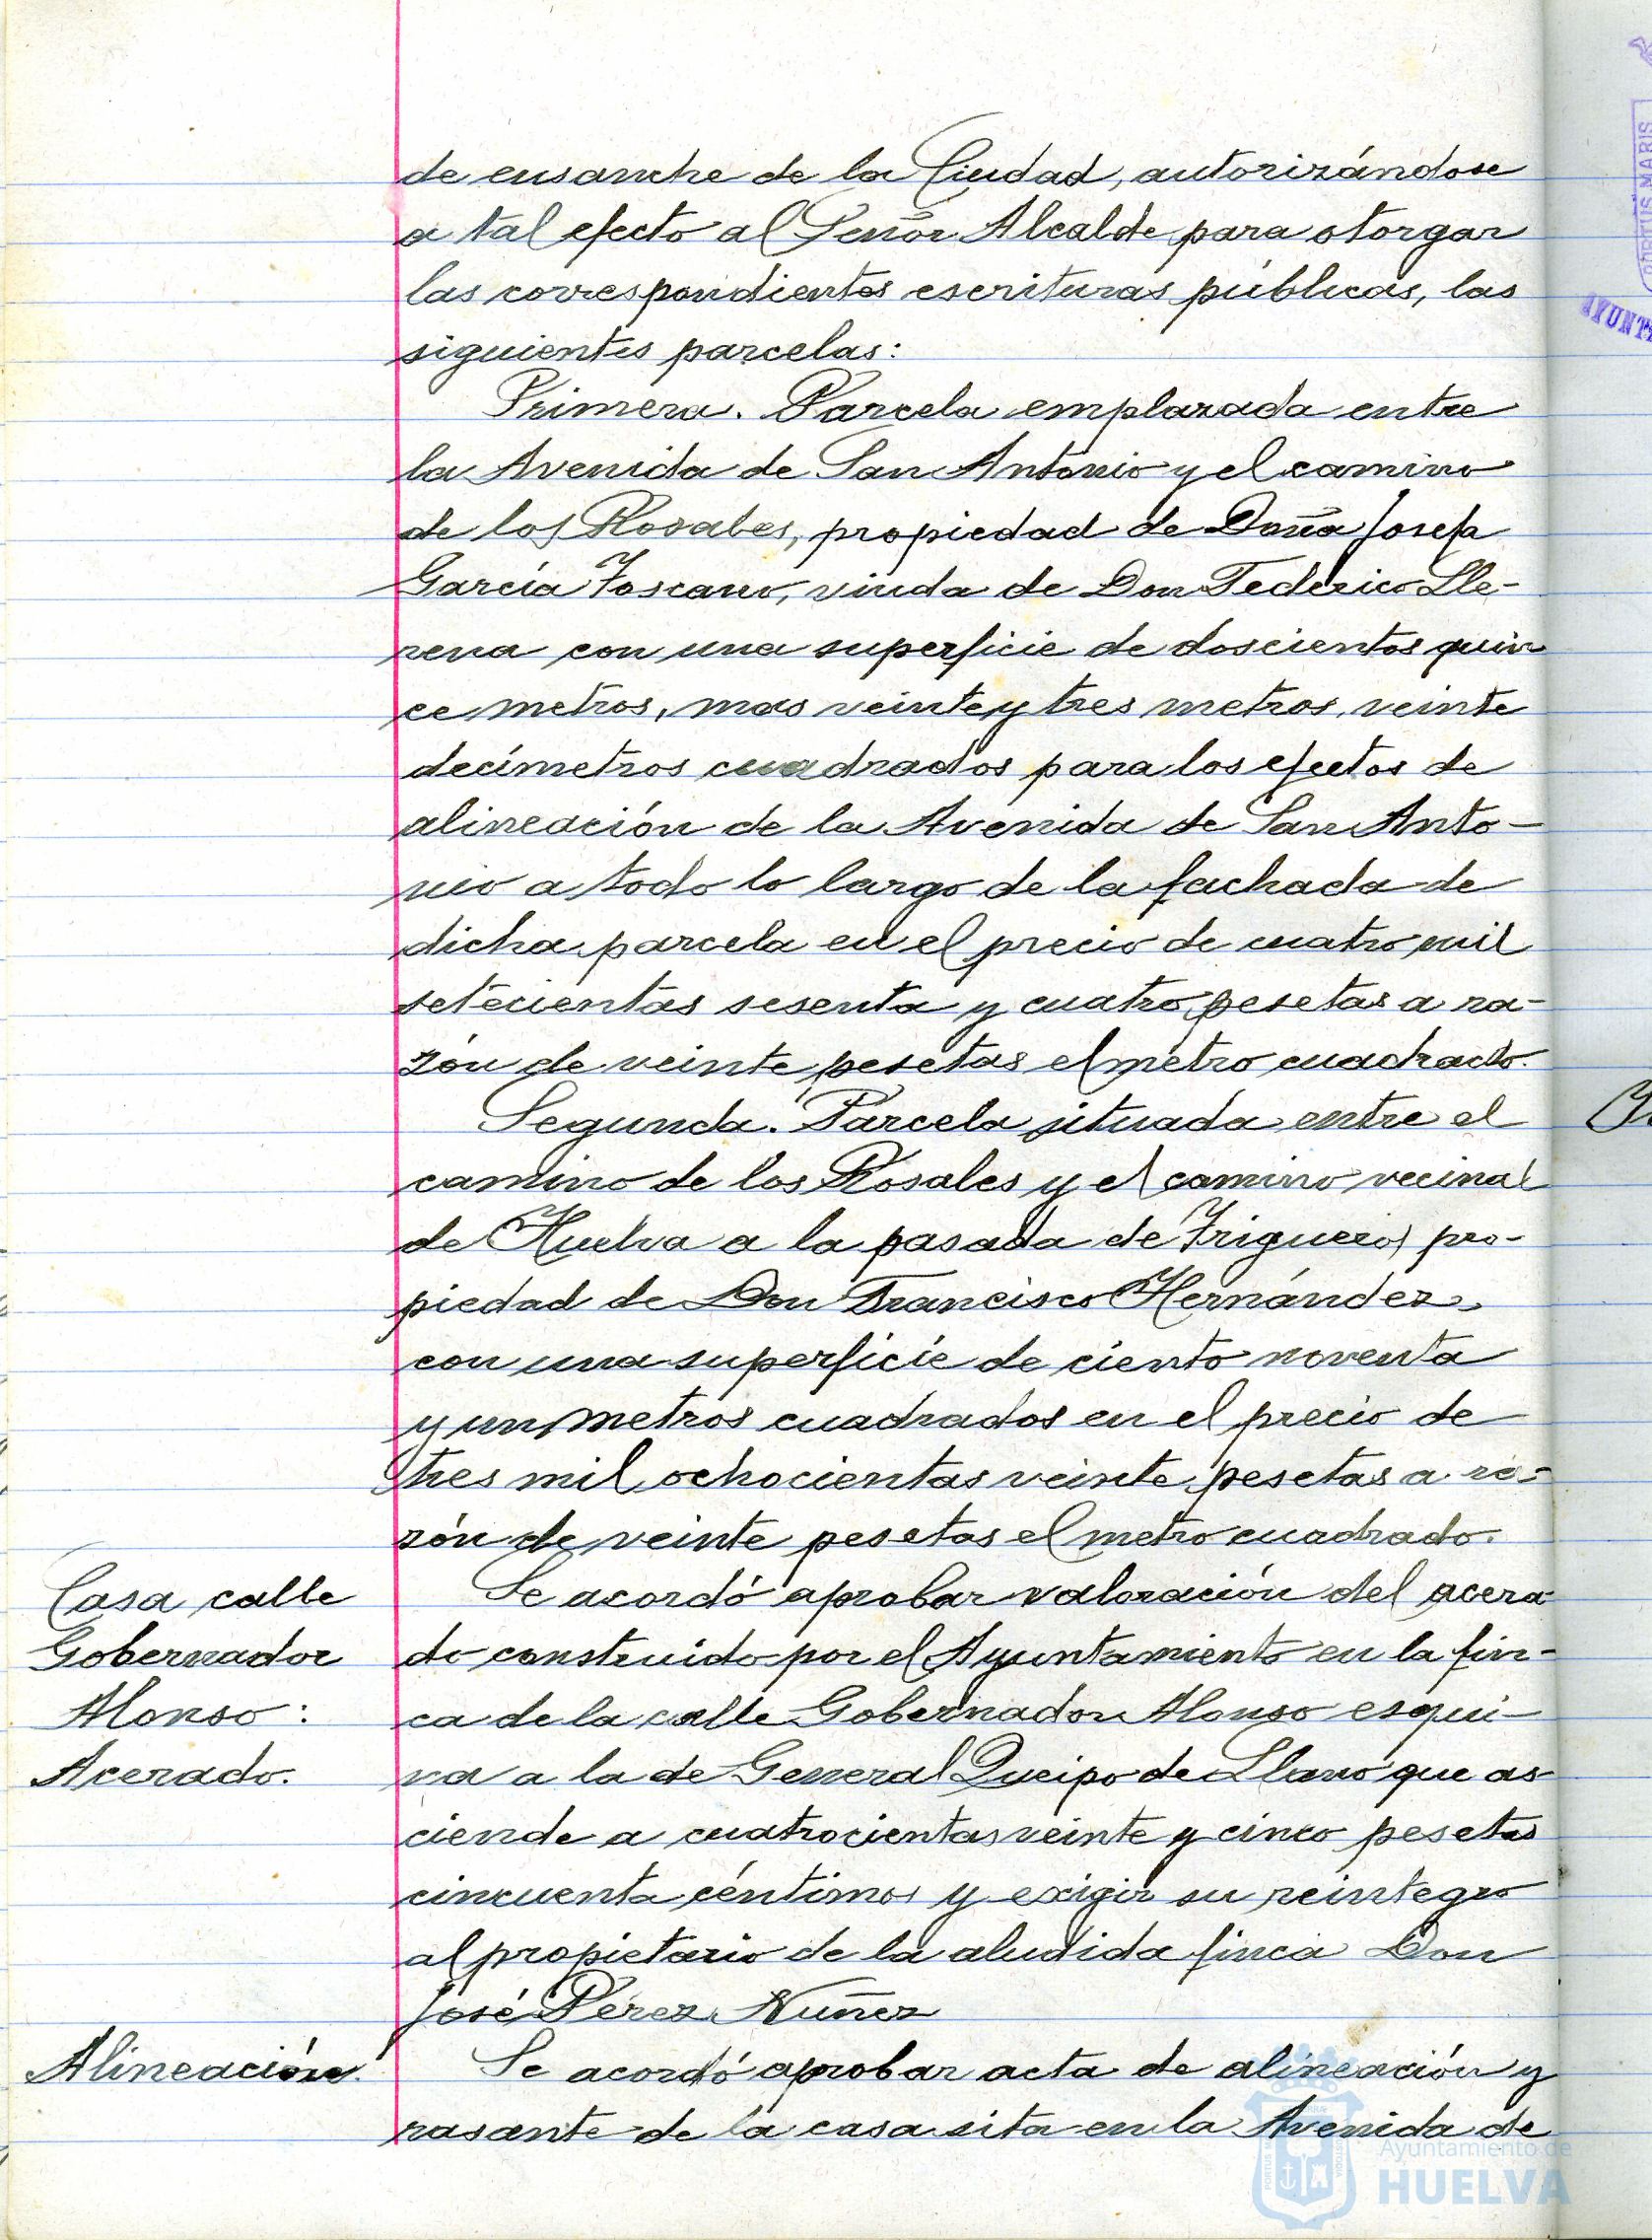 de ensanche de la Ciudad, autorizándose
a tal efecto al Señor Alcalde para otorgar
las correspondientes escrituras públicas, las
siguientes parcelas:
Primera. Parcela emplazada entre
la Avenida de San Antonio y el camino
de los Rosales, propiedad de Doña Josefa
García Toscano, viuda de Don Federico Lle-
rena con una superficie de doscientos quin
ce metros, mas veinte y tres metros, veinte
decímetros cuadrados para los efectos de
alineación de la Avenida de San Anto-
nio a todo lo largo de la fachada de
dicha parcela en el precio de cuatro mil
setecientas sesenta y cuatro pesetas a ra-
zón de veinte pesetas el metro cuadrado.
Segunda. Parcela situada entre el
camino de los Rosales y el camino vecinal
de Huelva a la pasada de Trigueros pro-
piedad de Don Francisco Hernández,
con una superficie de ciento noventa
y un metros cuadrados en el precio de
tres mil ochocientas veinte pesetas a ra-
zón de veinte pesetas el metro cuadrado.
Casa calle
Gobernador
Alonso:
Acerado.
Se acordó aprobar valoración del acera-
do construido por el Ayuntamiento en la fin-
ca de la calle Gobernador Alonso esqui-
na a la de General Queipo de Llano que as
ciende a cuatrocientas veinte y cinco pesetas
cincuenta céntimos y exigir su reintegro
al propietario de la aludida finca Don
José Pérez Nuñez
Alineación.
Se acordó aprobar acta de alineación y
rasante de la casa sita en la Avenida de
Ayuntamiento de
HUELVA
PORTUS MARIS
AYUNT